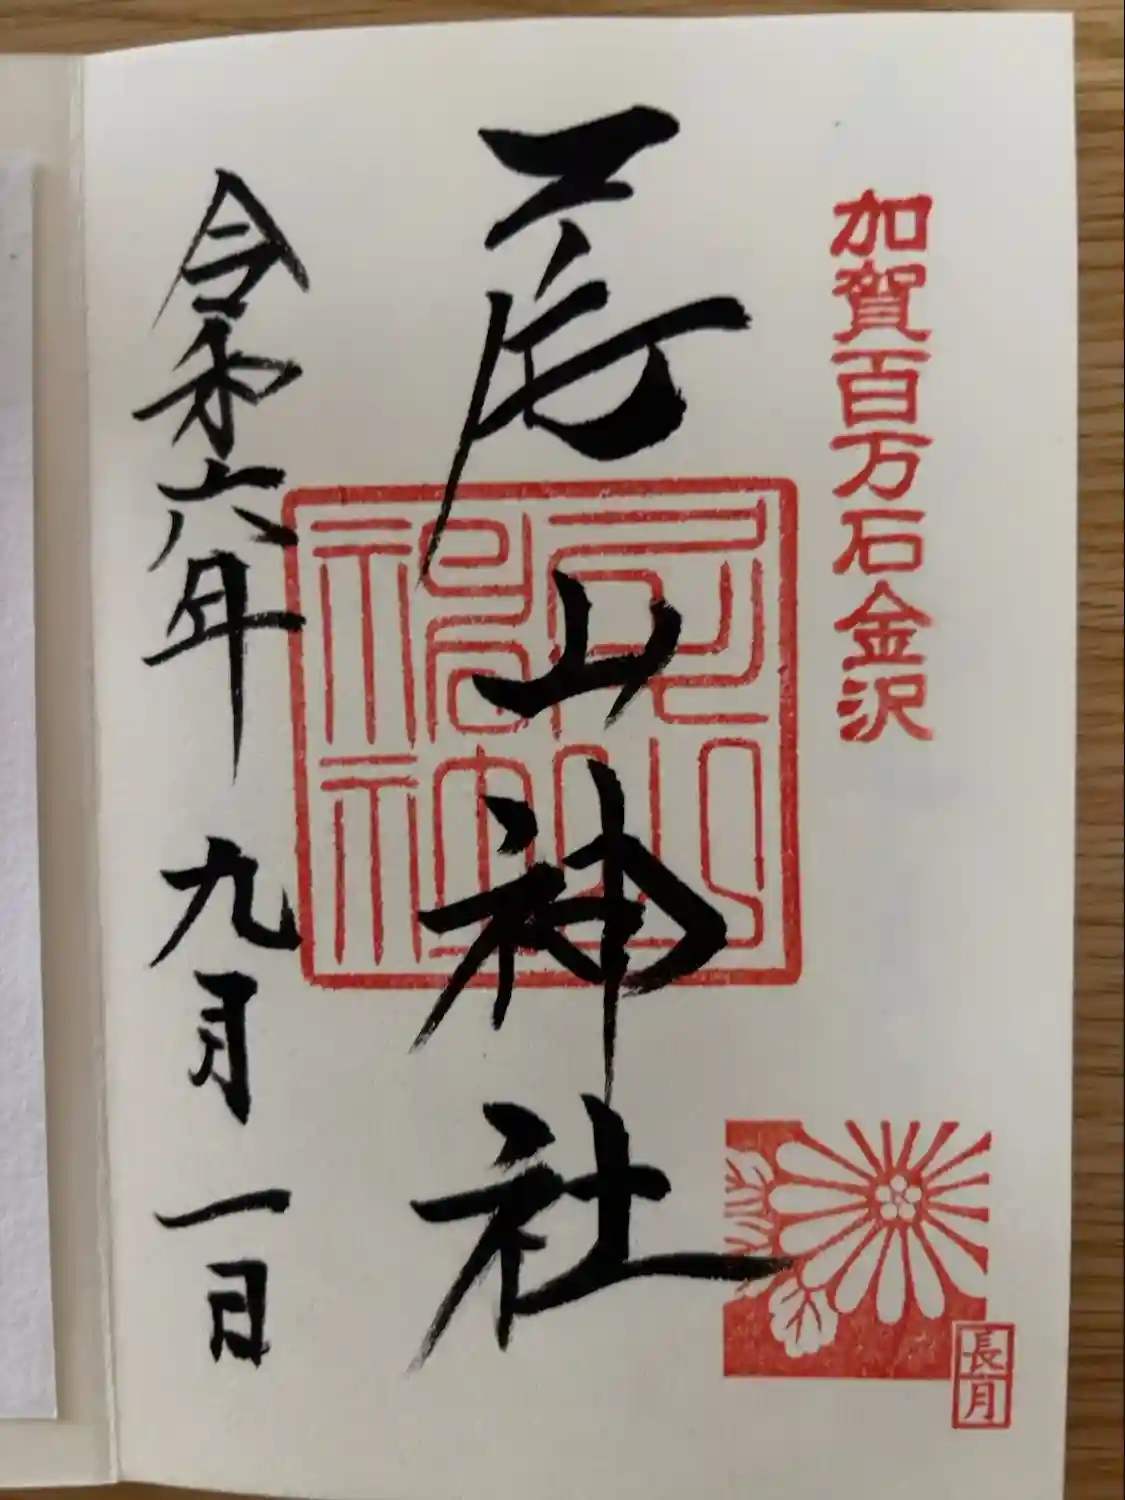 加賀百万石金沢
尾山神社
尾山神社
令和六年 九月 一日
長月